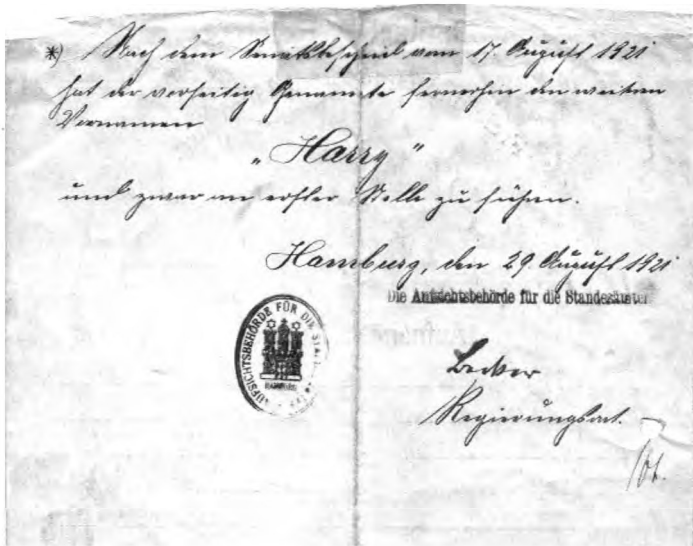 *) Nach dem Senatsbescheid vom 17. August 1921
hat der vorseitig Genannte fernerhin den weitern
Vornamen
„Harry“
und zwar an erster Stelle zu führen.
Hamburg, den 29 August 1921
Die Aufsichtsbehörde für die Standesämter
AUFSICHTSBEHÖRDE FÜR DIE
HAMBURG
Becker
Regierungsrat.